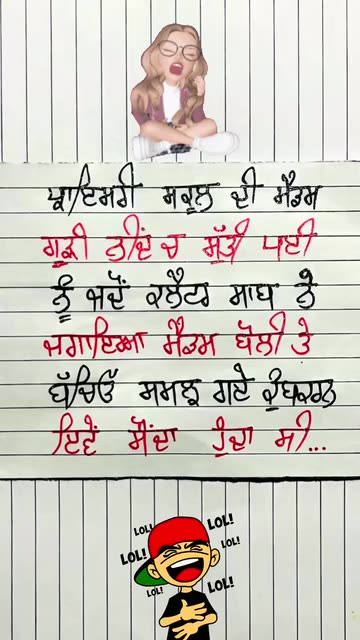 ਪ੍ਰਾਇਮਰੀ ਸਕੂਲ ਦੀ ਮੈਡਮ
ਗੂੜੀ ਨੀਂਦ ਚ ਸੁੱਤੀ ਪਈ
ਨੂੰ ਜਦੋਂ ਕਲੈਟਰ ਸਾਬ ਨੇ
ਜਗਾਇਆ ਮੈਡਮ ਬੋਲੀ ਤੇ
ਬੱਚਿਓਂ ਸਮਝ ਗਏ ਕੁੰਬਕਰਨ
ਇਵੇਂ ਸੌਂਦਾ ਹੁੰਦਾ ਸੀ...
LOL!
LOL!
LOL!
LOL!
LOL!
LOL!